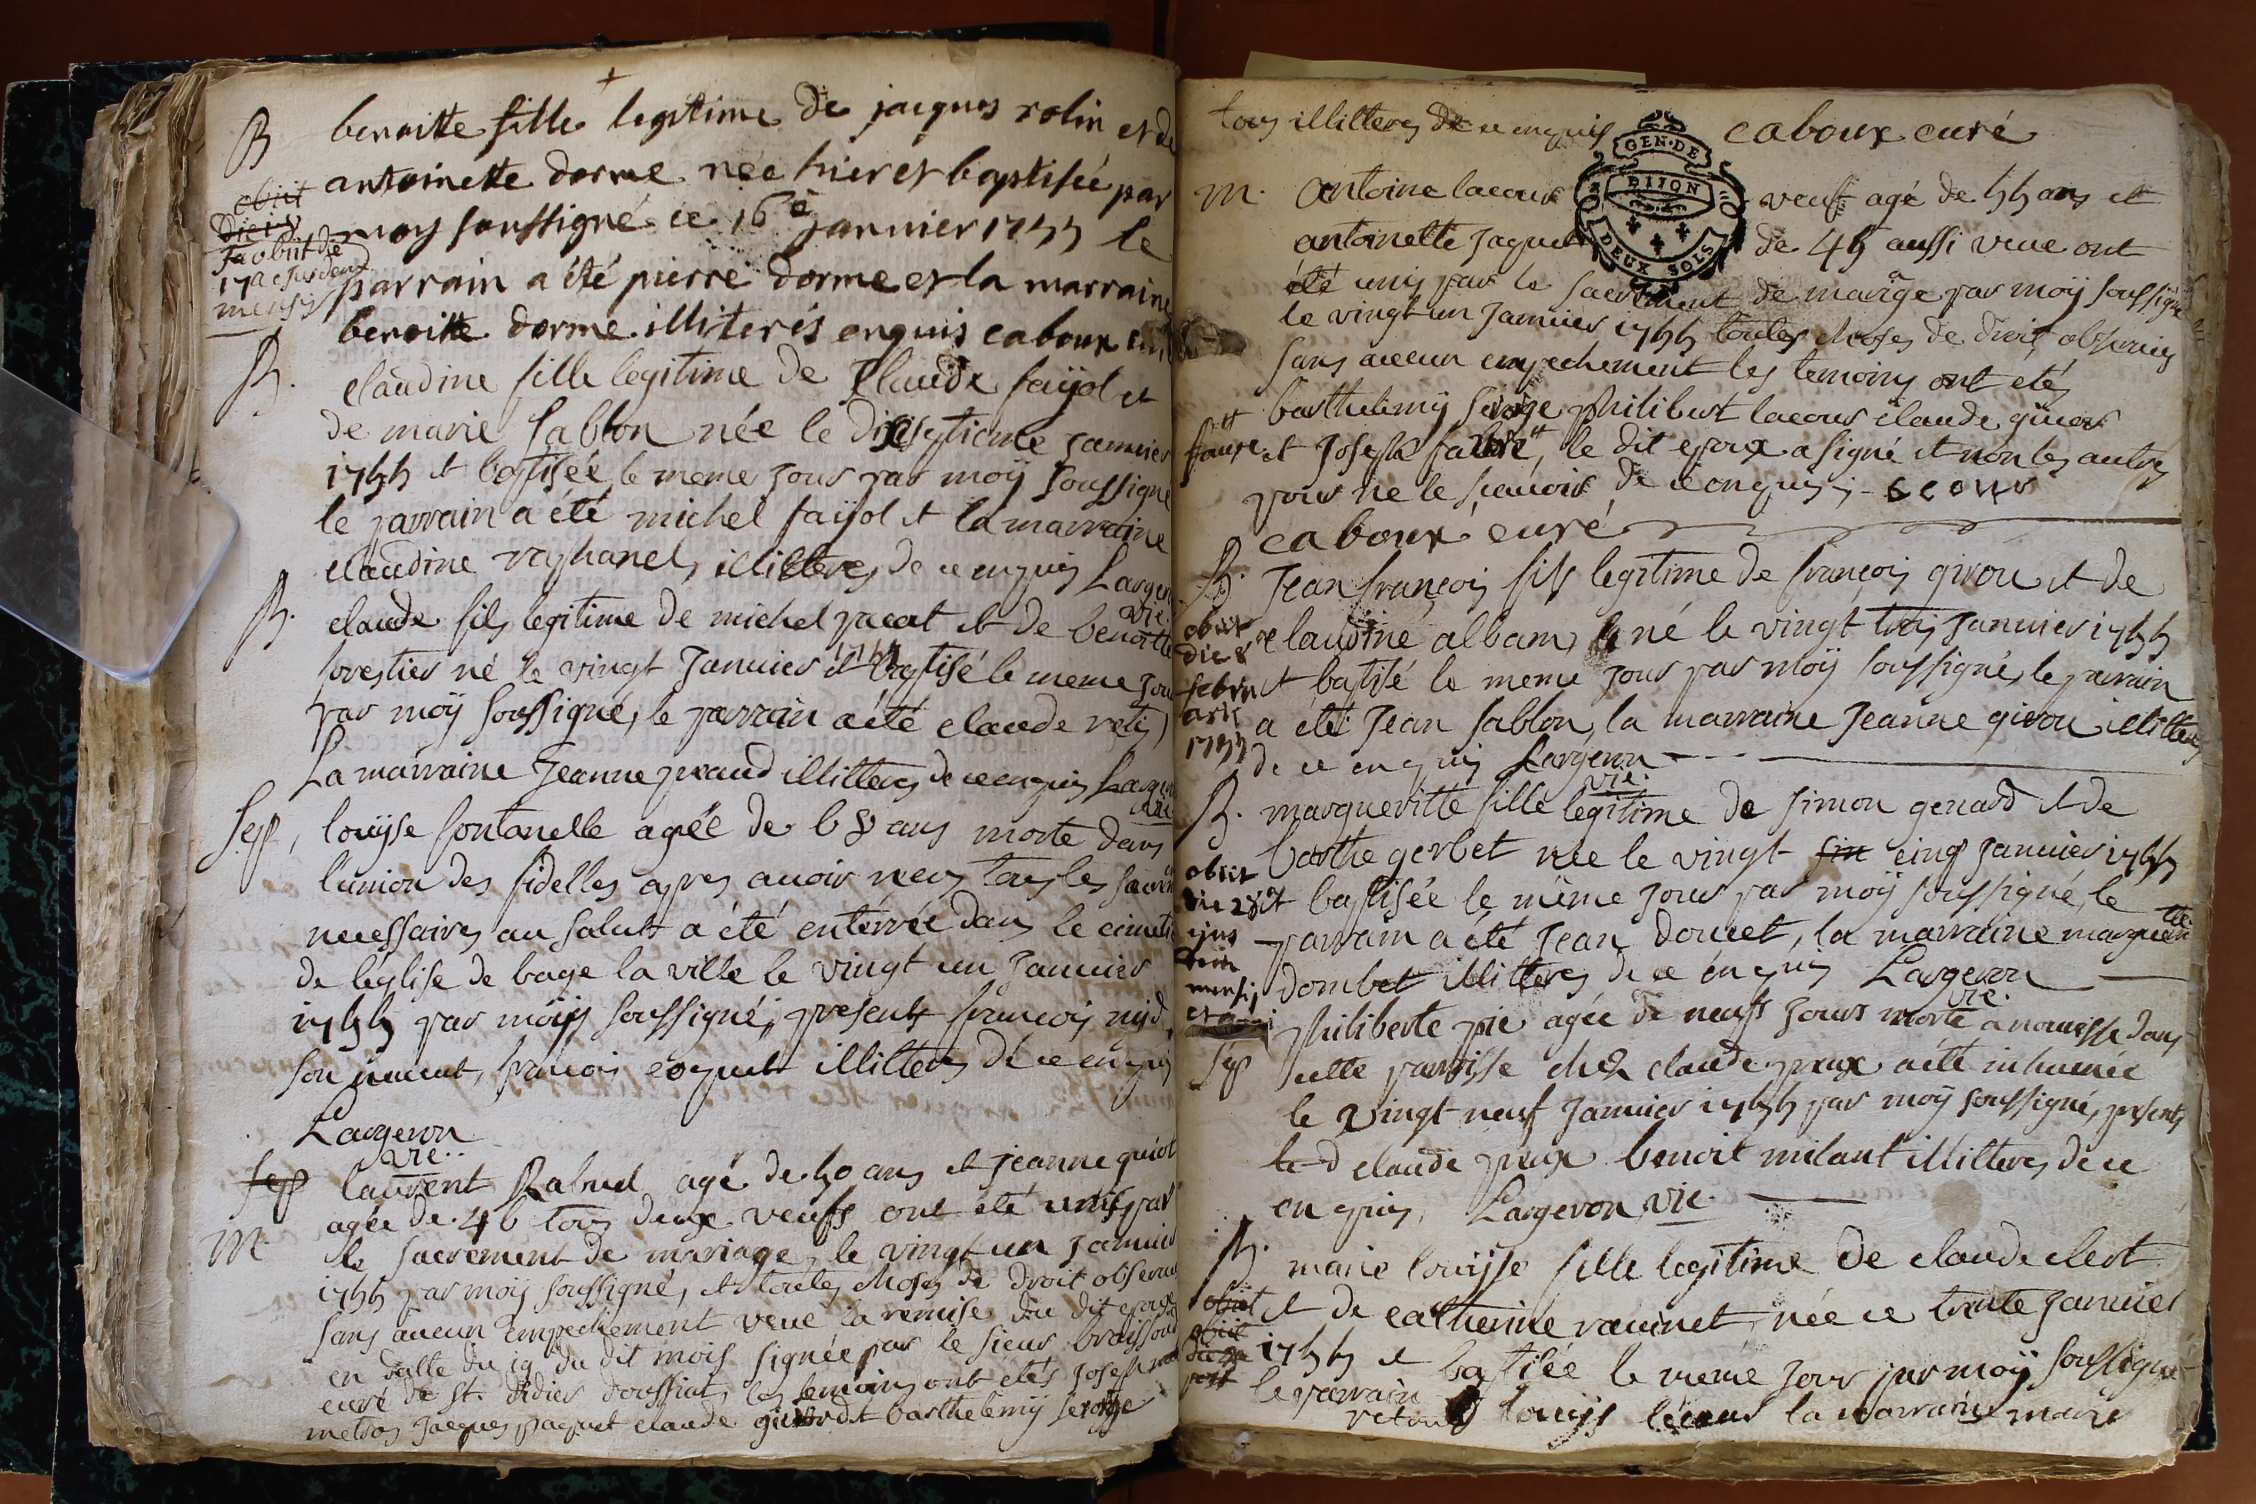 B benoitte fille legitime de jacques rolin et de
antoinette dorme née hier et baptisée par
obiit
moy soussigné ce 16e janvier 1755 le
parrain a été pierre dorme et la marraine
mensis
benoitte dorme illiterés enquis caboux
B. claudine fille legitime de Claude faÿol et
de marie sablon née le dixseptieme janvier
1755 et baptisée le meme jour par moÿ soussigné
le parrain a été michel faÿol et la marraine
claudine raphanel, illitteres de ce enquis Largeron
vic.
B. claude fils legitime de michel et de benoitte
forestier né le vingt janvier 1755 et baptisé le meme jour
par moÿ soussigné, le parrain a été claude
La marraine Jeanne illitteres de ce enquis Largeron
vic.
Sep, louÿse fontanelle agée de ans morte dans
l'union des fidelles apres avoir recu tous les
necessaires au salut a été enterrée dans le
de l'église de bage la ville le vingt un janvier
1755 par moÿ soussigné, presents francois
francois coquet illitteres de ce enquis
Largeron
vic..
Sep laurent agé de 50 ans et jeanne guiot
agée de tous deux veufs ont été unis par
M le sacrement de mariage, le vingt un janvier
1755 par moÿ soussigné, et toutes choses de droit observées
sans aucun empechement veue la remise du dit epoux
en datte du 19 du dit mois signée par le sieur
curé de st. didier doussiat, les temoins ont étés Joseph
Jacques paquet claude et barthelemÿ
tous illitteres de ce enquis caboux curé
GEN·DE
DIJON
DEUX SOLS
M. antoine lacour veuf agé de 55 ans et
antoinette Jaquet de 45 aussi veue ont
été unis par le sacrement de mariage par moÿ soussigné
le vingt un janvier 1755 toutes choses de droit observées
sans aucun empechement les temoins ont étés
barthelemÿ philibert lacour claude
faure et Joseph faure, le dit epoux a signé et non les autres
pour ne le scauoir de ce enquis
caboux curé
B. Jean françois fils legitime de françois girou et de
obiit
claudine alban, né le vingt trois janvier 1755
die 8
et batisé le meme jour par moÿ soussigné, le parrain
a été Jean sablon, la marraine Jeanne girou illitteres
1755
de ce enquis Largeron
vic.
B. margueritte fille legitime de simon genard et de
barthe gerbet née le vingt cinq janvier 1755
obiit
die 28
et baptisée le même jour par moÿ soussigné, le
parrain a été Jean doucet, la marraine margueritte
mensis
dombet illitteres de ce enquis Largeron
vic.
philiberte pie agée de neufs jours morte a nourisse dans
Sep cette parroisse chez claude preux a été inhumée
le vingt neuf janvier 1755 par moÿ soussigné, presents
claude preux benoit milant illitteres de ce
enquis, Largeron vic.
B. marie louÿse fille legitime de claude clert
obiit
et de catherine ravinet, née ce trente janvier
1755 et batisée le meme jour par moÿ soussigné
le parrain louÿs la marraine marie